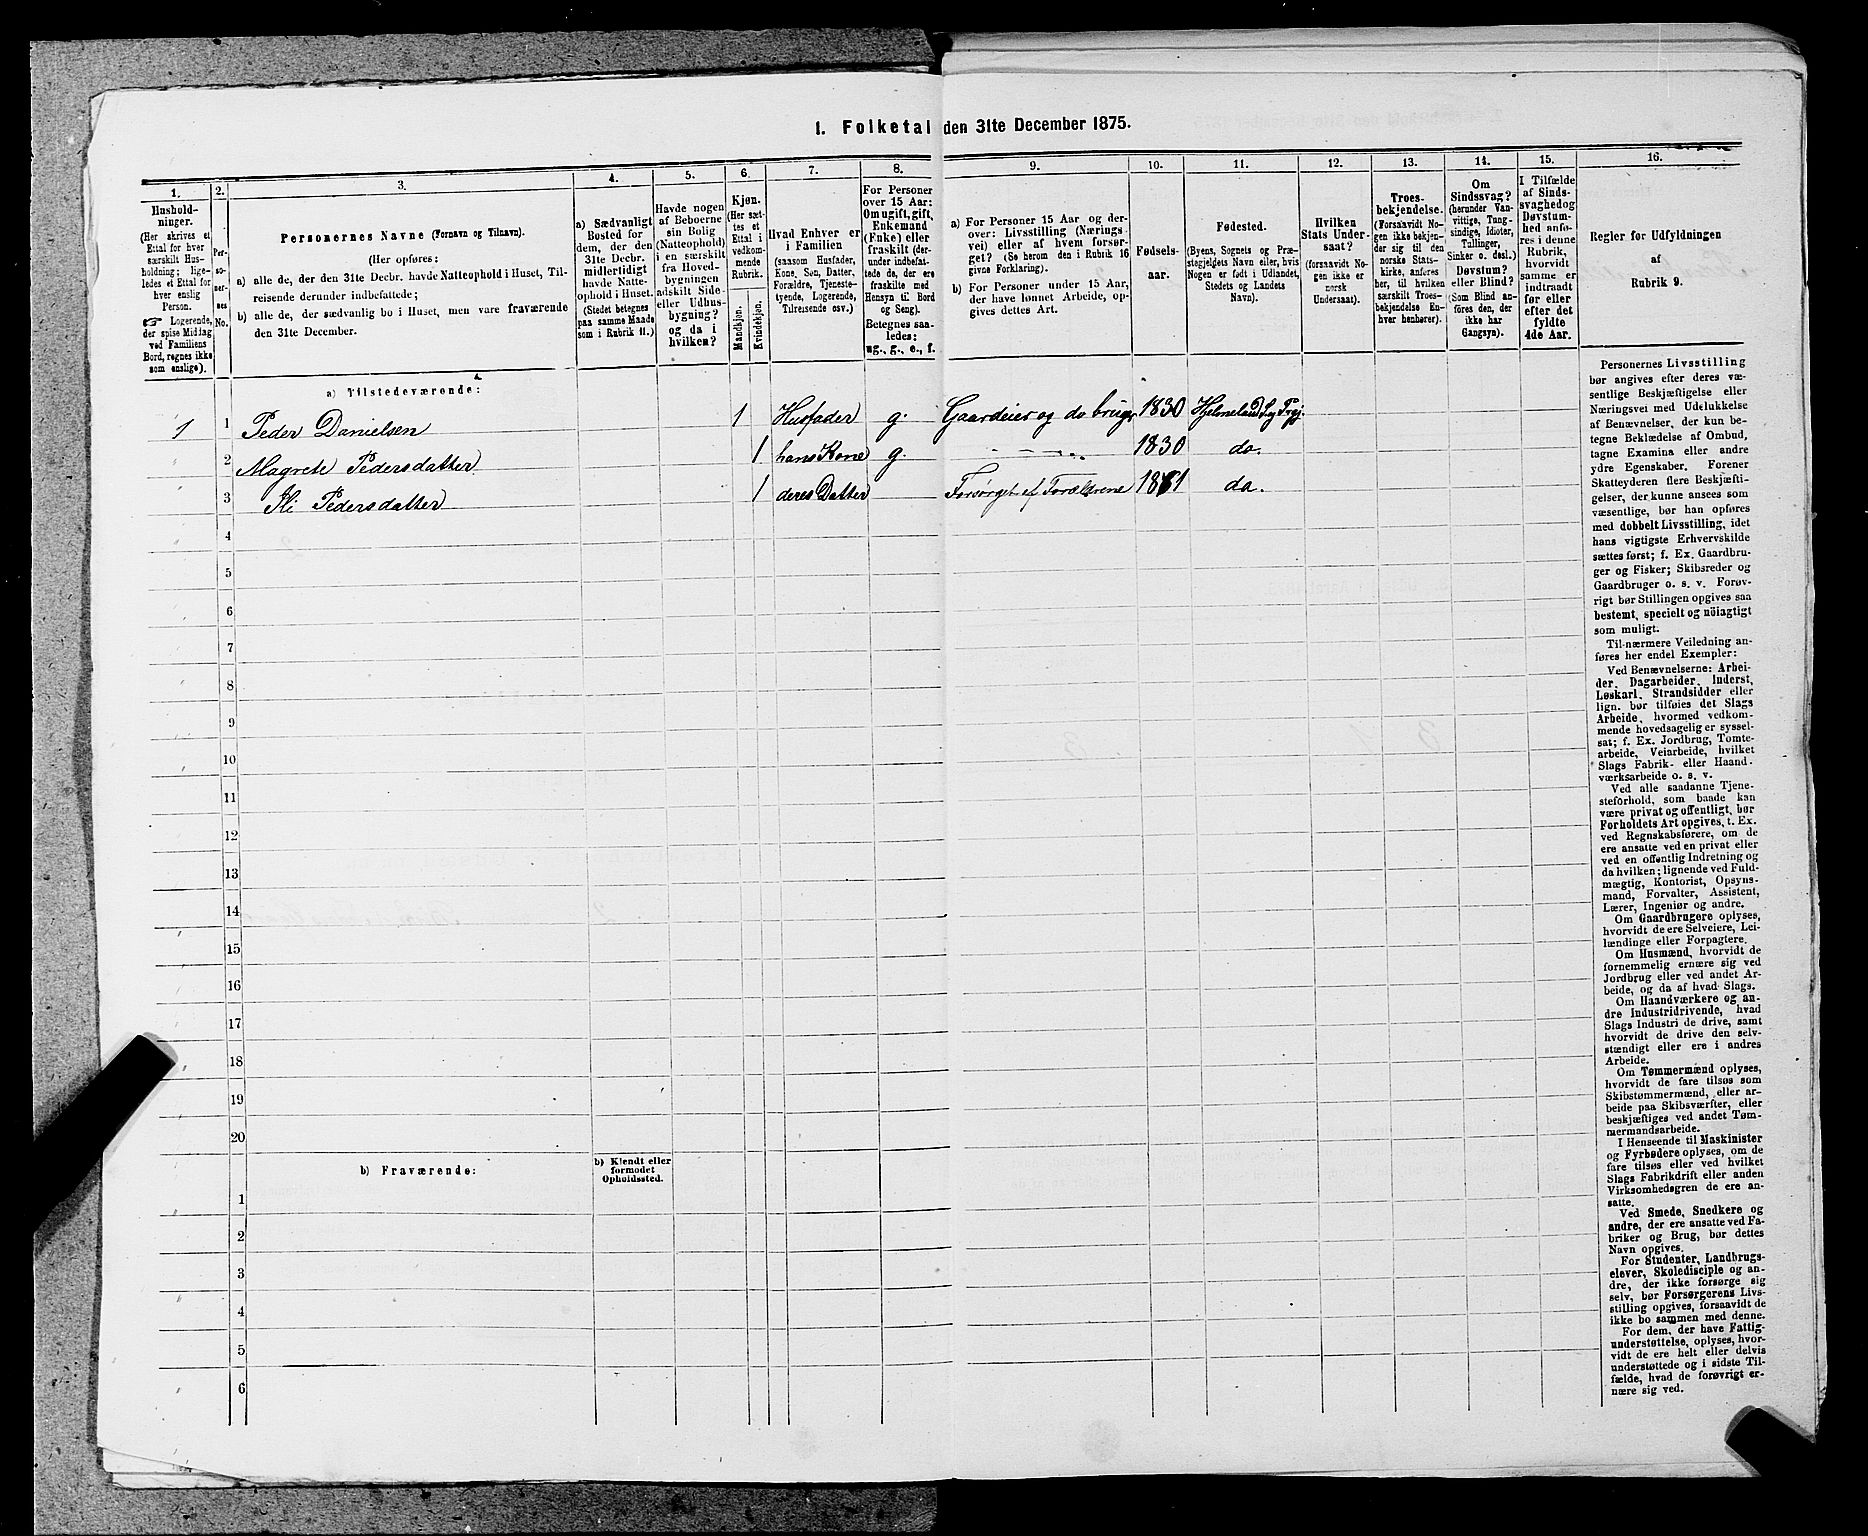 1. Folketal den 31te December 1875.
1. 2. 3. 4. 5. 6. 7. 8. 9. 10. 11. 12. 13. 14. 15. 16.
Hushold-
ninger.
(Her skrives et
Ettal for hver
særskilt Hus-
holdning; lige-
ledes et Ettal for
hver enslig
Person.
☞ Logerende,
der spise Middag
ved Familiens
Bord, regnes ikke
som enslige).
Per-
so-
ner-
nes
No.
Personernes Navne (Fornavn og Tilnavn).
(Her opføres:
a) alle de, der den 31te Decbr. havde Natteophold i Huset, Til-
reisende derunder indbefattede;
b) alle de, der sædvanlig bo i Huset, men vare fraværende
den 31te December.
a) Sædvanligt
Bosted for
dem, der den
31te Decbr.
midlertidigt
havde Natte-
ophold i Huset.
(Stedet betegnes
paa samme Maade
som i Rubrik 11.)
Havde nogen
af Beboerne
sin Bolig
(Natteophold)
i en særskilt
fra Hoved-
bygningen
adskilt Side-
eller Udhus-
bygning?
og da i
hvilken?
Kjøn.
(Her sæt-
tes et
Ettal i
vedkom-
mende
Rubrik.
Mandkjøn.
Kvindekjøn.
Hvad Enhver er
i Familien
(saasom Husfader,
Kone, Søn, Datter,
Forældre, Tjeneste-
tyende, Logerende,
Tilreisende osv.)
For Personer
over 15 Aar:
Om ugift, gift,
Enkemand
(Enke) eller
fraskilt (der-
under indbefat-
tede de, der ere
fraskilte med
Hensyn til Bord
og Seng).
Betegnes saa-
ledes:
ug., g., e., f.
a) For Personer 15 Aar og der-
over: Livsstilling (Nærings-
vei) eller af hvem forsør-
get? (Se herom den i Rubrik 16
givne Forklaring).
b) For Personer under 15 Aar,
der have lønnet Arbeide, op-
gives dettes Art.
Fødsels-
aar.
Fødested.
(Byens, Sognets og Præ-
stegjeldets Navn eller, hvis
Nogen er født i Udlandet,
Stedets og Landets
Navn).
Hvilken
Stats Under-
saat?
(forsaavidt No-
gen ikke er
norsk
Undersaat).
Troes-
bekjendelse.
(Forsaavidt No-
gen ikke bekjen-
der sig til den
norske Stats-
kirke, anføres
her, til hvilken
særskilt Troes-
bekjendelse En-
hver henhører).
Om
Sindssvag?
(herunder Van-
vittige, Tung-
sindige, Idioter,
Tullinger,
Sinker o. desl.)
Døvstum?
eller Blind?
(Som Blind an-
føres den, der
ikke har
Gangsyn).
I Tilfælde
af Sinds-
svaghed og
Døvstum-
hed anfø-
res i denne
Rubrik,
hvorvidt
samme er
indtraadt
før eller
efter det
fyldte
4de Aar.
Regler for Udfyldningen
af
Rubrik 9.
a) Tilstedeværende:
1 1 Peder Danielsen 1 Husfader g. Gaardeier og do bruger 1830
2 Magrete Pedersdatter 1 hans Kone g. 1830 do.
3 Pedersdatter 1 deres Datter Forsørget af Forældrene 1861 do.
4
5
6
7
8
9
10
11
12
13
14
15
16
17
18
19
20
b) Fraværende:
b) Kjendt eller
formodet
Opholdssted.
1
2
3
4
5
6
Personernes Livsstilling
bør angives efter deres væ-
sentlige Beskjæftigelse eller
Næringsvei med Udelukkelse
af Benævnelser, der kun be-
tegne Beklædelse af Ombud,
tagne Examina eller andre
ydre Egenskaber. Forener
Skatteyderen flere Beskjæfti-
gelser, der kunne ansees som
væsentlige, bør han opføres
med dobbelt Livsstilling, idet
hans vigtigste Erhvervskilde
sættes først; f. Ex. Gaardbru-
ger og Fisker; Skibsreder og
Gaardbruger o. s. v. Forøv-
rigt bør Stillingen opgives saa
bestemt, specielt og nöiagtigt
som muligt.
Til nærmere Veiledning an-
føres her endel Exempler:
Ved Benævnelserne: Arbei-
der, Dagarbeider, Inderst,
Løskarl, Strandsidder eller
lign. bør tilføies det Slags
Arbeide, hvormed vedkom-
mende hovedsagelig er syssel-
sat; f. Ex. Jordbrug, Tomte-
arbeide, Veiarbeide, hvilket
Slags Fabrik- eller Haand-
værksarbeide o. s. v.
Ved alle saadanne Tjene-
steforhold, som baade kan
være privat og offentligt, bør
Forholdets Art opgives, t. Ex.
ved Regnskabsførere, om de
ere ansatte ved en privat eller
ved en offentlig Indretning og
da hvilken; lignende ved Fuld-
mægtig, Kontorist, Opsyns-
mand, Forvalter, Assistent,
Lærer, Ingeniør og andre.
Om Gaardbrugere oplyses,
hvorvidt de ere Selveiere, Lei-
lændinge eller Forpagtere.
Om Husmænd, hvorvidt de
fornemmelig ernære sig ved
Jordbrug eller ved andet Ar-
beide, og da af hvad Slags.
Om Haandværkere og an-
dre Industridrivende, hvad
Slags Industri de drive, samt
hvorvidt de drive den selv-
stændigt eller ere i andres
Arbeide.
Om Tømmermænd oplyses,
hvorvidt de fare tilsøs som
Skibstømmermænd, eller ar-
beide paa Skibsværfter, eller
beskjæftiges ved andet Tøm-
mermandsarbeide.
I Henseende til Maskinister
og Fyrbødere oplyses, om de
fare tilsøs eller ved hvilket
Slags Fabrikdrift eller anden
Virksomhedsgren de ere an-
satte.
Ved Smede, Snedkere og
andre, der ere ansatte ved Fa-
briker og Brug, bør dettes
Navn opgives.
For Studenter, Landbrugs-
elever, Skoledisciple og an-
dre, der ikke forsørge sig
selv, bør Forsørgerens Livs-
stilling opgives, forsaavidt de
ikke bo sammen med denne.
For dem, der have Fattig-
understøttelse, oplyses, hvor-
vidt de ere helt eller delvis
understøttede og i sidste Til-
fælde, hvad de forøvrigt er-
nære sig ved.